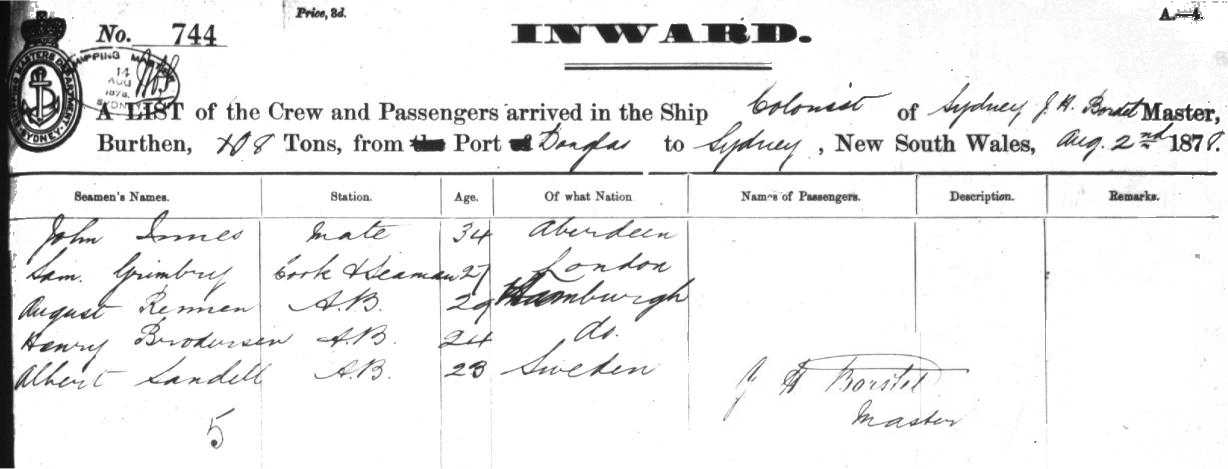 Price, 3d.
A.—4.
No. 744
INWARD.
SHIPPING MASTERS DEPARTMENT SYDNEY
SHIPPING MASTER
14
AUG
1878
SYDNEY
A LIST of the Crew and Passengers arrived in the Ship Colonist of Sydney J. H. Borstel Master,
Burthen, 108 Tons, from the Port of Douglas to Sydney, New South Wales, Aug. 2nd 1878.
Seamen's Names. Station. Age. Of what Nation Names of Passengers. Description. Remarks.
John Innes Mate 34 Aberdeen
Sam. Grimbry Cook & Seaman 27 London
August Rennen A.B. 29 Hamburgh
Henry Brodersen A.B. 24 do.
Albert Sandell A.B. 23 Sweden
J H Borstel
Master
5